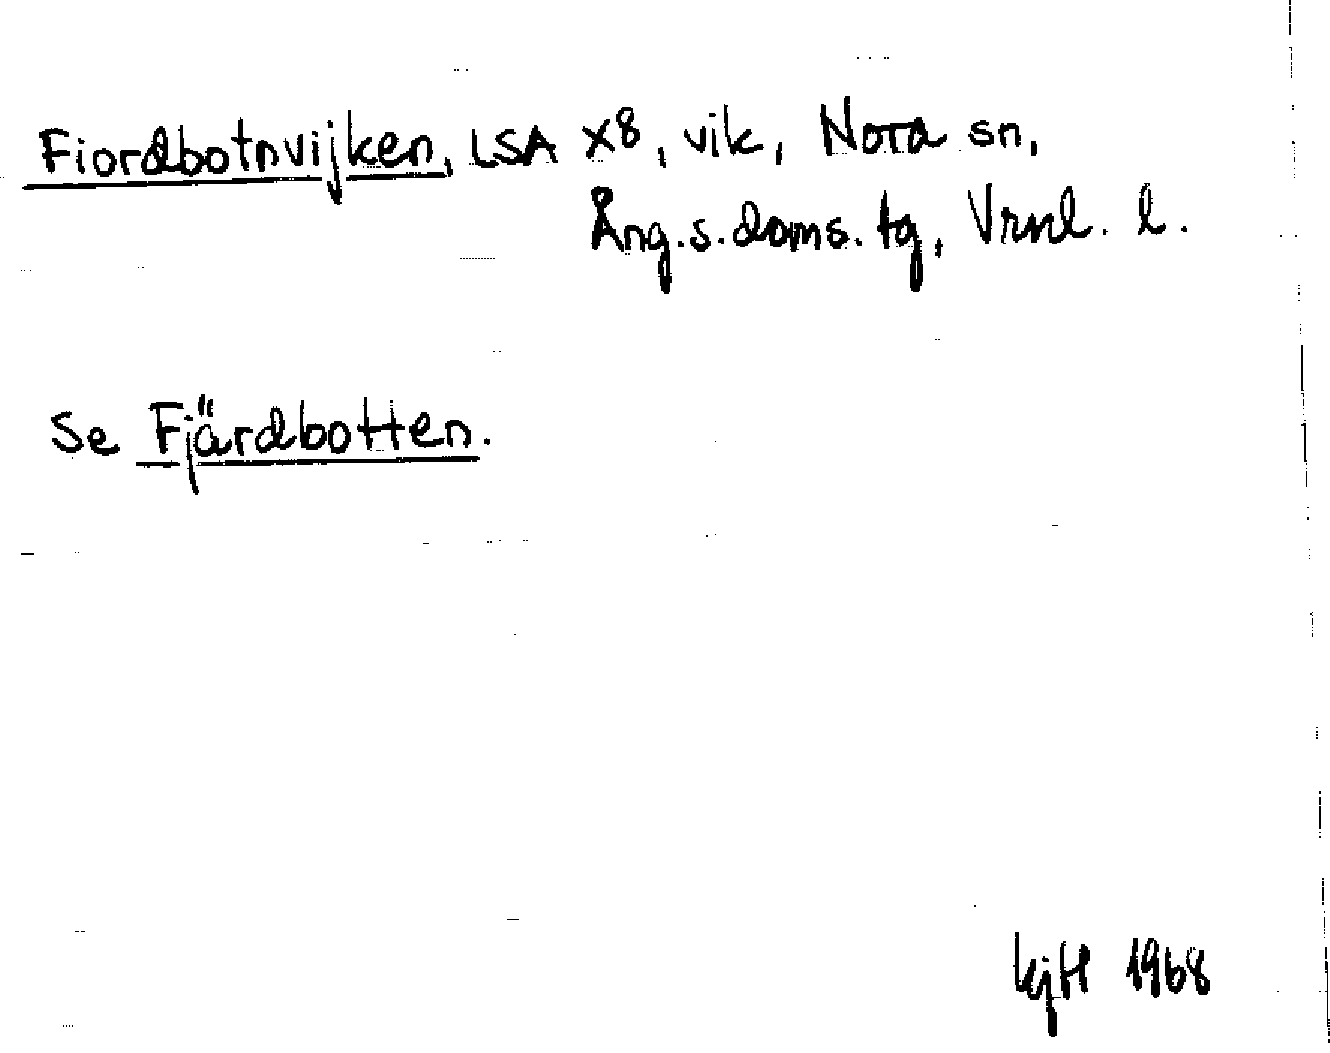 Fiordbotnvijken, LSA X8, vik, Nora sn,
Ång.s.doms. tg, Vrnl. l.
Se Fjärdbotten.
KjH 1968